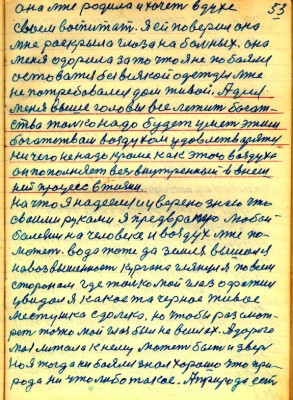 53
она мне родила и хочет в духе
своем воспитат. Я ей поверил она
мне раскрыла глаза на больных. она
меня одорила за то что я не побаялся
остоватся без всякой одежды мне
не потребовался дом живой. А для
меня выше головы все летит богат-
ство только надо будет умет этим
богатством воздухом удовлетварятся
ничего не надо кроме как этого воздуха
он пополняет вез внутренный в внеш
ний процес в жизни.
На что я надеялся и уверено знаю что
своими руками я предвращаю любой
болезни на человеке и воздух мне по-
может. вода тоже да земля вышол я
на возвышеност кургана глянул я по всем
сторонам где только мой глаз охватил
увидал я какое та черное живое
местушка с далеко. но чтобы разсмот-
рет то но мой глаз был не велик. А дорога
моя летала к нему может быть и звер
но я тогда ни баялся знал хорошо что при-
рода ни что либо такое. А природа ест